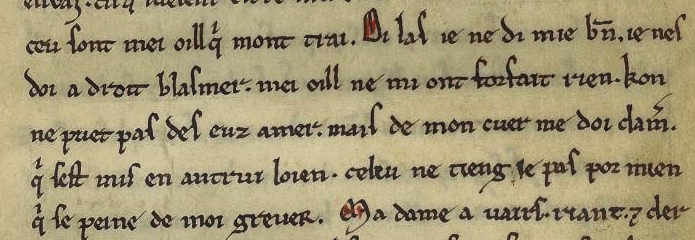 ceu sont mei oill q̍ mont traı. Ai las ie ne di mie bn̄. ie nes
doi a droit blasmer. mei oill ne mi ont forfait rien. kon
ne puet pas des euz amer. mais de mon cuer me doi clam̄.
q̍ sest mis en autrui loien. celeu ne tieng ie pas por mien
q̍ se peine de moi grever. Ma dame a vairs. riant. ⁊ cler